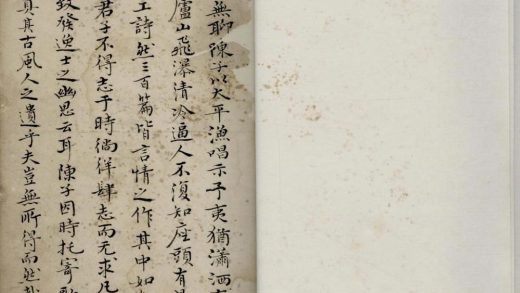 無聊陳子以太平漁唱示予夷猶瀟洒
廬山飛瀑清冷逼人不復知座頭有
工詩然三百篇皆言情之作其中如
君子不得志于時徜徉肆志而无求
致發逸士之幽思云耳陳子因時托寄
真其古風人之遺乎夫豈無所得而然哉